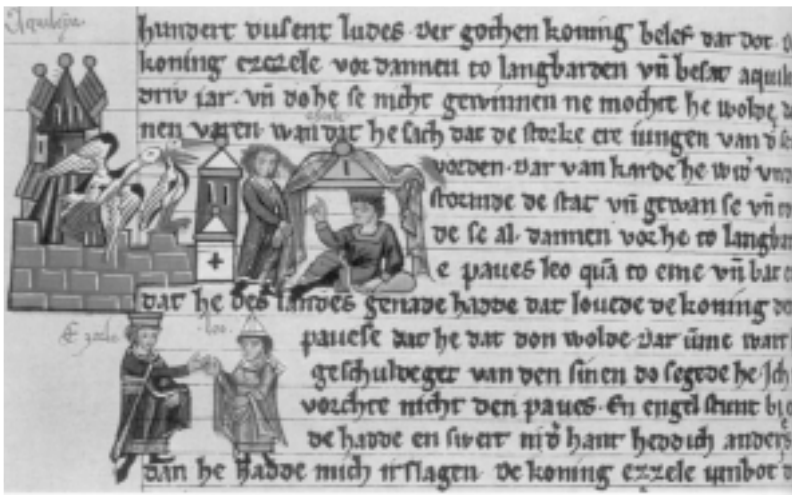 Aquileya
hundert dusent ludes. Der gothen koning belef dar dot. D
koning ezzele vor dannen to langbarden vn besat aquile
driv iar. vn do he se nicht gewinnen ne mochte he wolde da
ezcele
nen varen. wan dat he sach dat de storke ere iungen van d' s
vorden. Dar van karde he wid' vn
stormde de stat vn gewan se vn
de se al. dannen vor he to langbar
e paves leo quā to eme vn bat
dat he des landes genade hadde dat lovede de koning de
Ezcele leo
pavese dat he dat don wolde. Dar ūme wart
geschuldeget van den sinen do segede he. Ich
vorchte nicht den paves. En engel stunt bi
de hadde en swert in d' hant hedd ich anders
dan he hadde mich irslagen. De koning ezzele umbot d